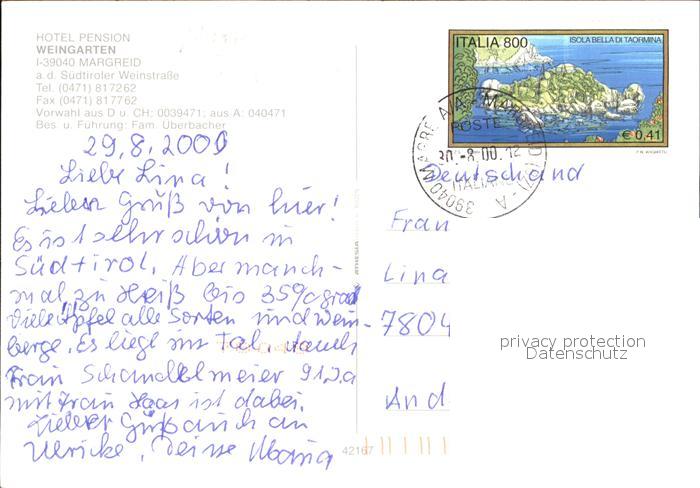 HOTEL PENSION
WEINGARTEN
I-39040 MARGREID
a.d. Südtiroler Weinstraße
Tel. (0471) 817262
Fax (0471) 817762
Vorwahl aus D u. CH; 0039471; aus A: 040471
Bes. u. Führung: Fam. Überbacher
29,8,2000
Liebe Lina!
Lieben Gruß von hier!
Es ist sehr schön in
Südtirol. Aber manch-
mal zu Heiß bis 35% grad
Viele Äpfel alle Sorten und Wein-
berge. Es liegt im Tal. Auch
Frau Schandelmeier 91 J.a
mit Frau Haas ist dabei.
Lieber Gruß auch an
Ulrike, Deine Maria
ITALIA 800
ISOLA BELLA DI TAORMINA
€ 0,41
POSTE
30.-8.00.12
ITALIANE
39040
Deutschland
Fran
Lina
7804
And
privacy protection
Datenschutz
42167